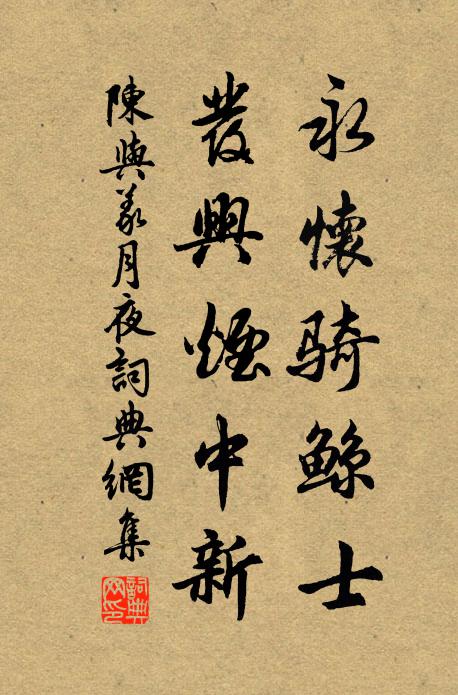 永懷騎鯨士
發興煙中新
陳與義月夜詞典網集
詞典网印